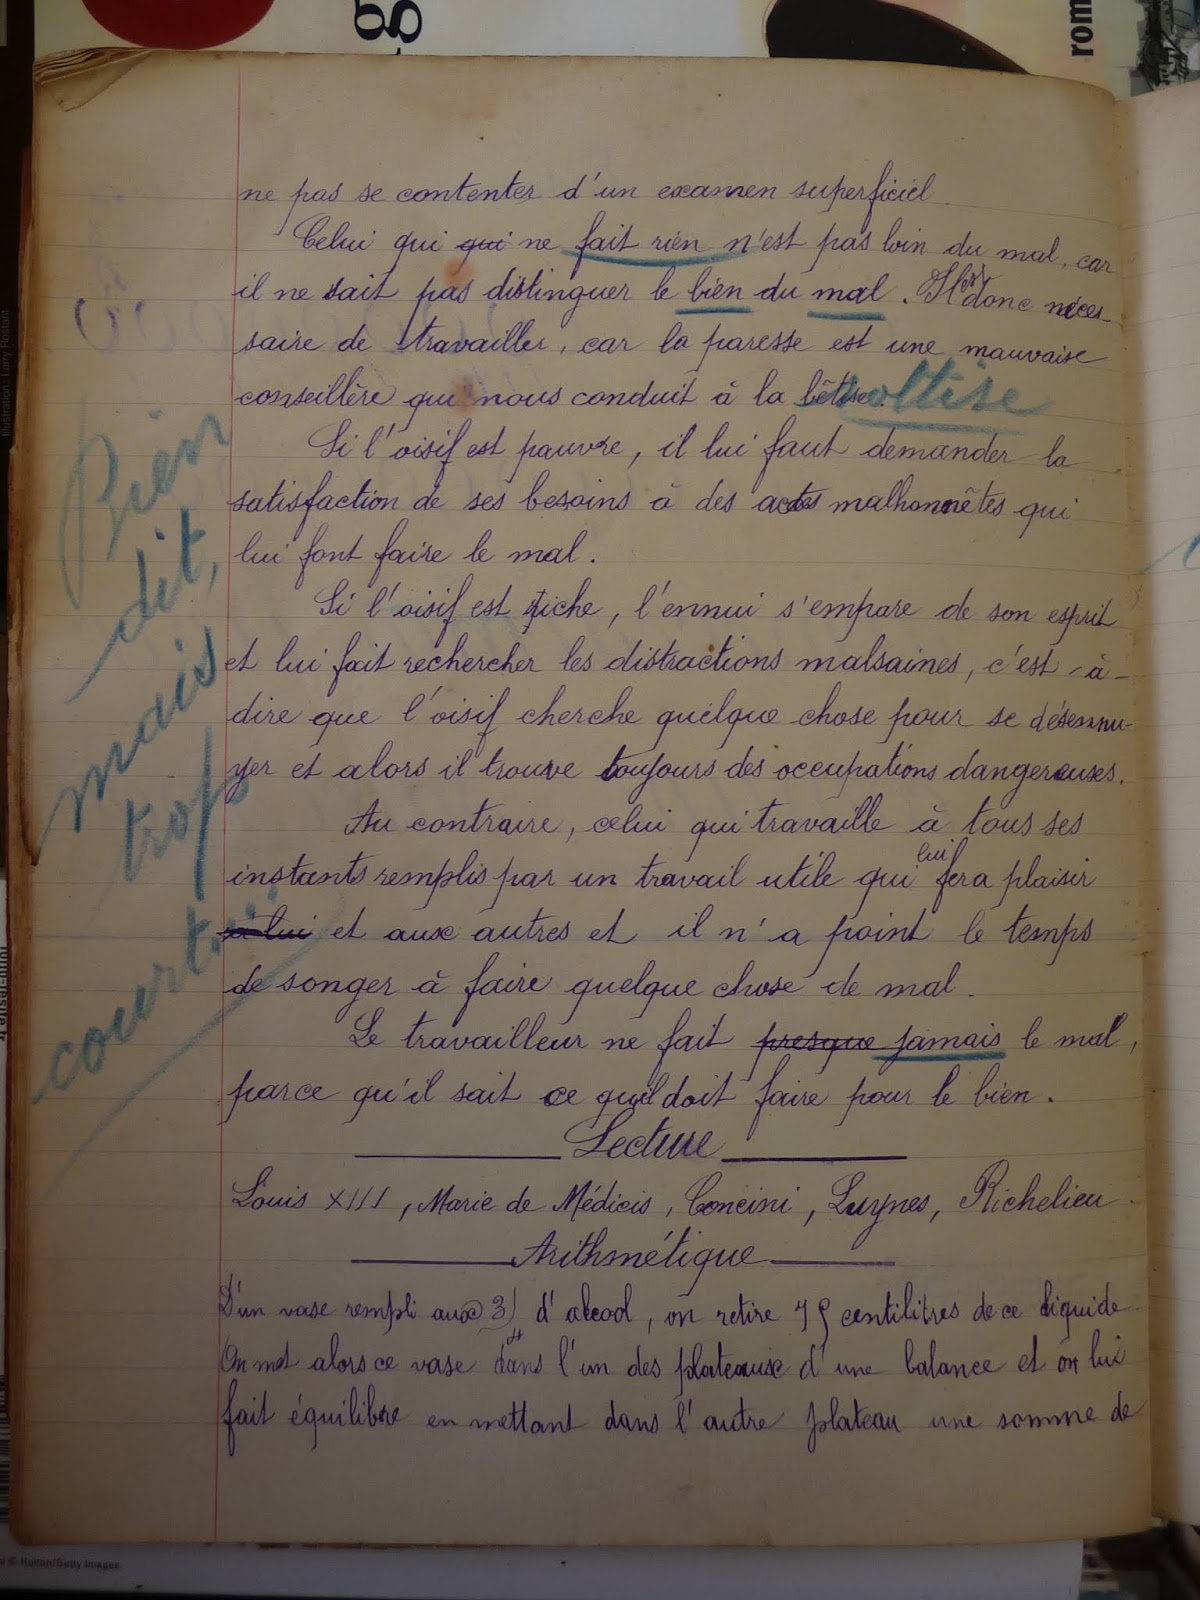 g
rom
Illustration : Larry Rostant
ne pas se contenter d'un examen superficiel.
Celui qui qui ne fait rien n'est pas loin du mal, car
il ne sait pas distinguer le bien du mal. Il est donc néces-
saire de travailler, car la paresse est une mauvaise
conseillère qui nous conduit à la bêtise. sottise
Si l'oisif est pauvre, il lui faut demander la
satisfaction de ses besoins à des actes malhonnêtes qui
lui font faire le mal.
Si l'oisif est riche, l'ennui s'empare de son esprit
et lui fait rechercher les distractions malsaines, c'est-à-
dire que l'oisif cherche quelque chose pour se désennu-
yer et alors il trouve toujours des occupations dangereuses.
Au contraire, celui qui travaille à tous ses
instants remplis par un travail utile qui lui fera plaisir
à lui et aux autres et il n'a point le temps
de songer à faire quelque chose de mal.
Le travailleur ne fait presque jamais le mal,
parce qu'il sait ce qu'il doit faire pour le bien.
Bien
dit,
mais
trop
court...
Lecture
Louis XIII, Marie de Médicis, Concini, Luynes, Richelieu.
Arithmétique
D'un vase rempli aux 3/4 d'alcool, on retire 75 centilitres de ce liquide.
On met alors ce vase dans l'un des plateaux d'une balance et on lui
fait équilibre en mettant dans l'autre plateau une somme de
© Hulton/Getty Images